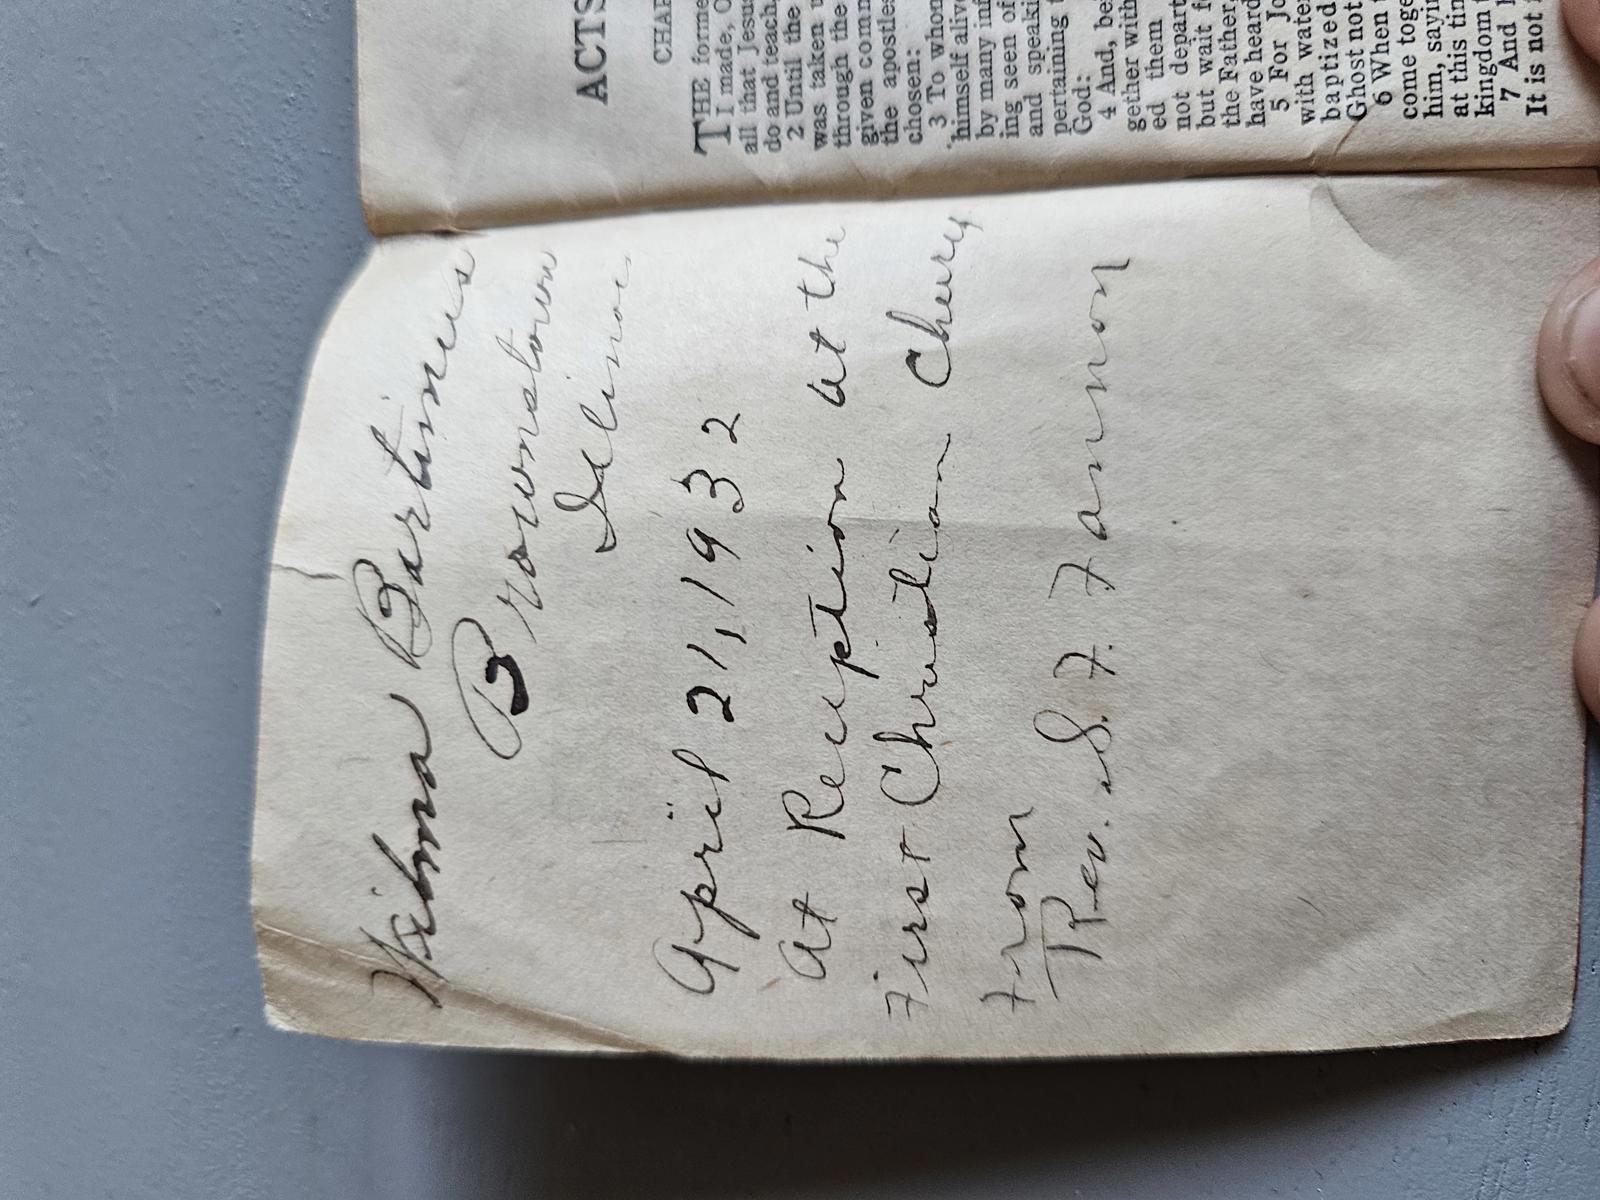 Wilma Bartimus
Brownstown
Illinois
April 21, 1932
At Reception at the
First Christian Church
From
Rev. S. F. Fannon
ACTS
CHAP
THE forme
I made, O
all that Jesus
do and teach,
2 Until the
was taken u
through the
given comm
the apostles
chosen:
3 To whom
himself alive
by many inf
ing seen of
and speaki
pertaining t
God:
4 And, be
gether with
ed them
not depart
but wait fo
the Father,
have heard
5 For Jo
with water
baptized
Ghost not
6 When t
come toge
him, sayin
at this tim
kingdom t
7 And h
It is not